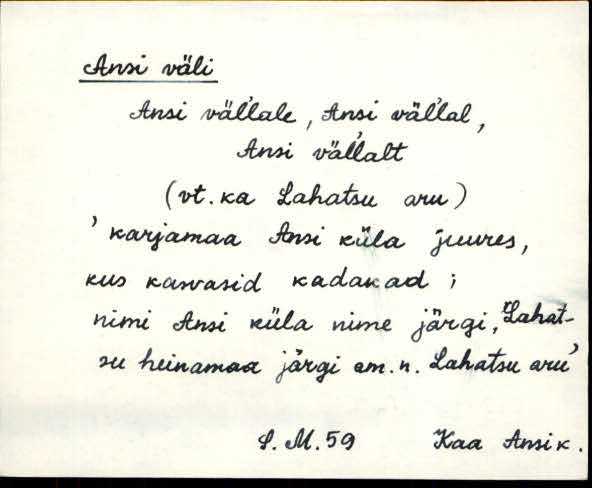 Ansi väli
Ansi väl'l'ale, Ansi väl'l'al,
Ansi väl'l'alt
(vt. ka Lahatsu aru)
' karjamaa Ansi küla juures,
kus kasvasid kadakad ;
nimi Ansi küla nime järgi, Lahat-
su heinamaa järgi om. n. Lahatsu aru'
S. M. 59 Kaa Ansi k.